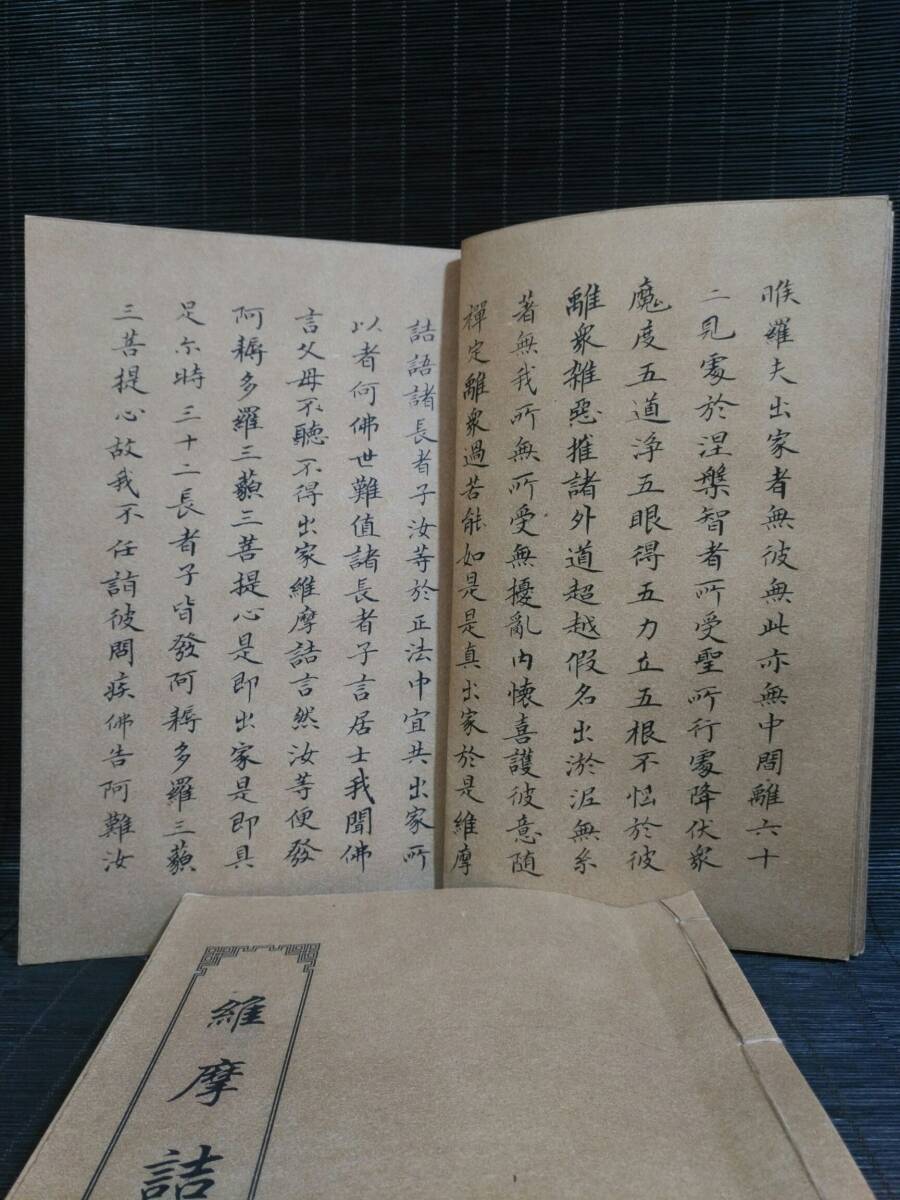 睺羅夫出家者無彼無此亦無中間離六十
二見處於涅槃智者所受聖所行處降伏衆
魔度五道淨五眼得五力立五根不惱於彼
離衆雜惡摧諸外道超越假名出淤泥無系
著無我所無所受無擾亂内懷喜護彼意隨
禪定離衆過若能如是是真出家於是維摩
詰語諸長者子汝等於正法中宜共出家所
以者何佛世難值諸長者子言居士我聞佛
言父母不聽不得出家維摩詰言然汝等便發
阿耨多羅三藐三菩提心是即出家是即具
足尒時三十二長者子皆發阿耨多羅三藐
三菩提心故我不任詣彼問疾佛告阿難汝
維摩詰